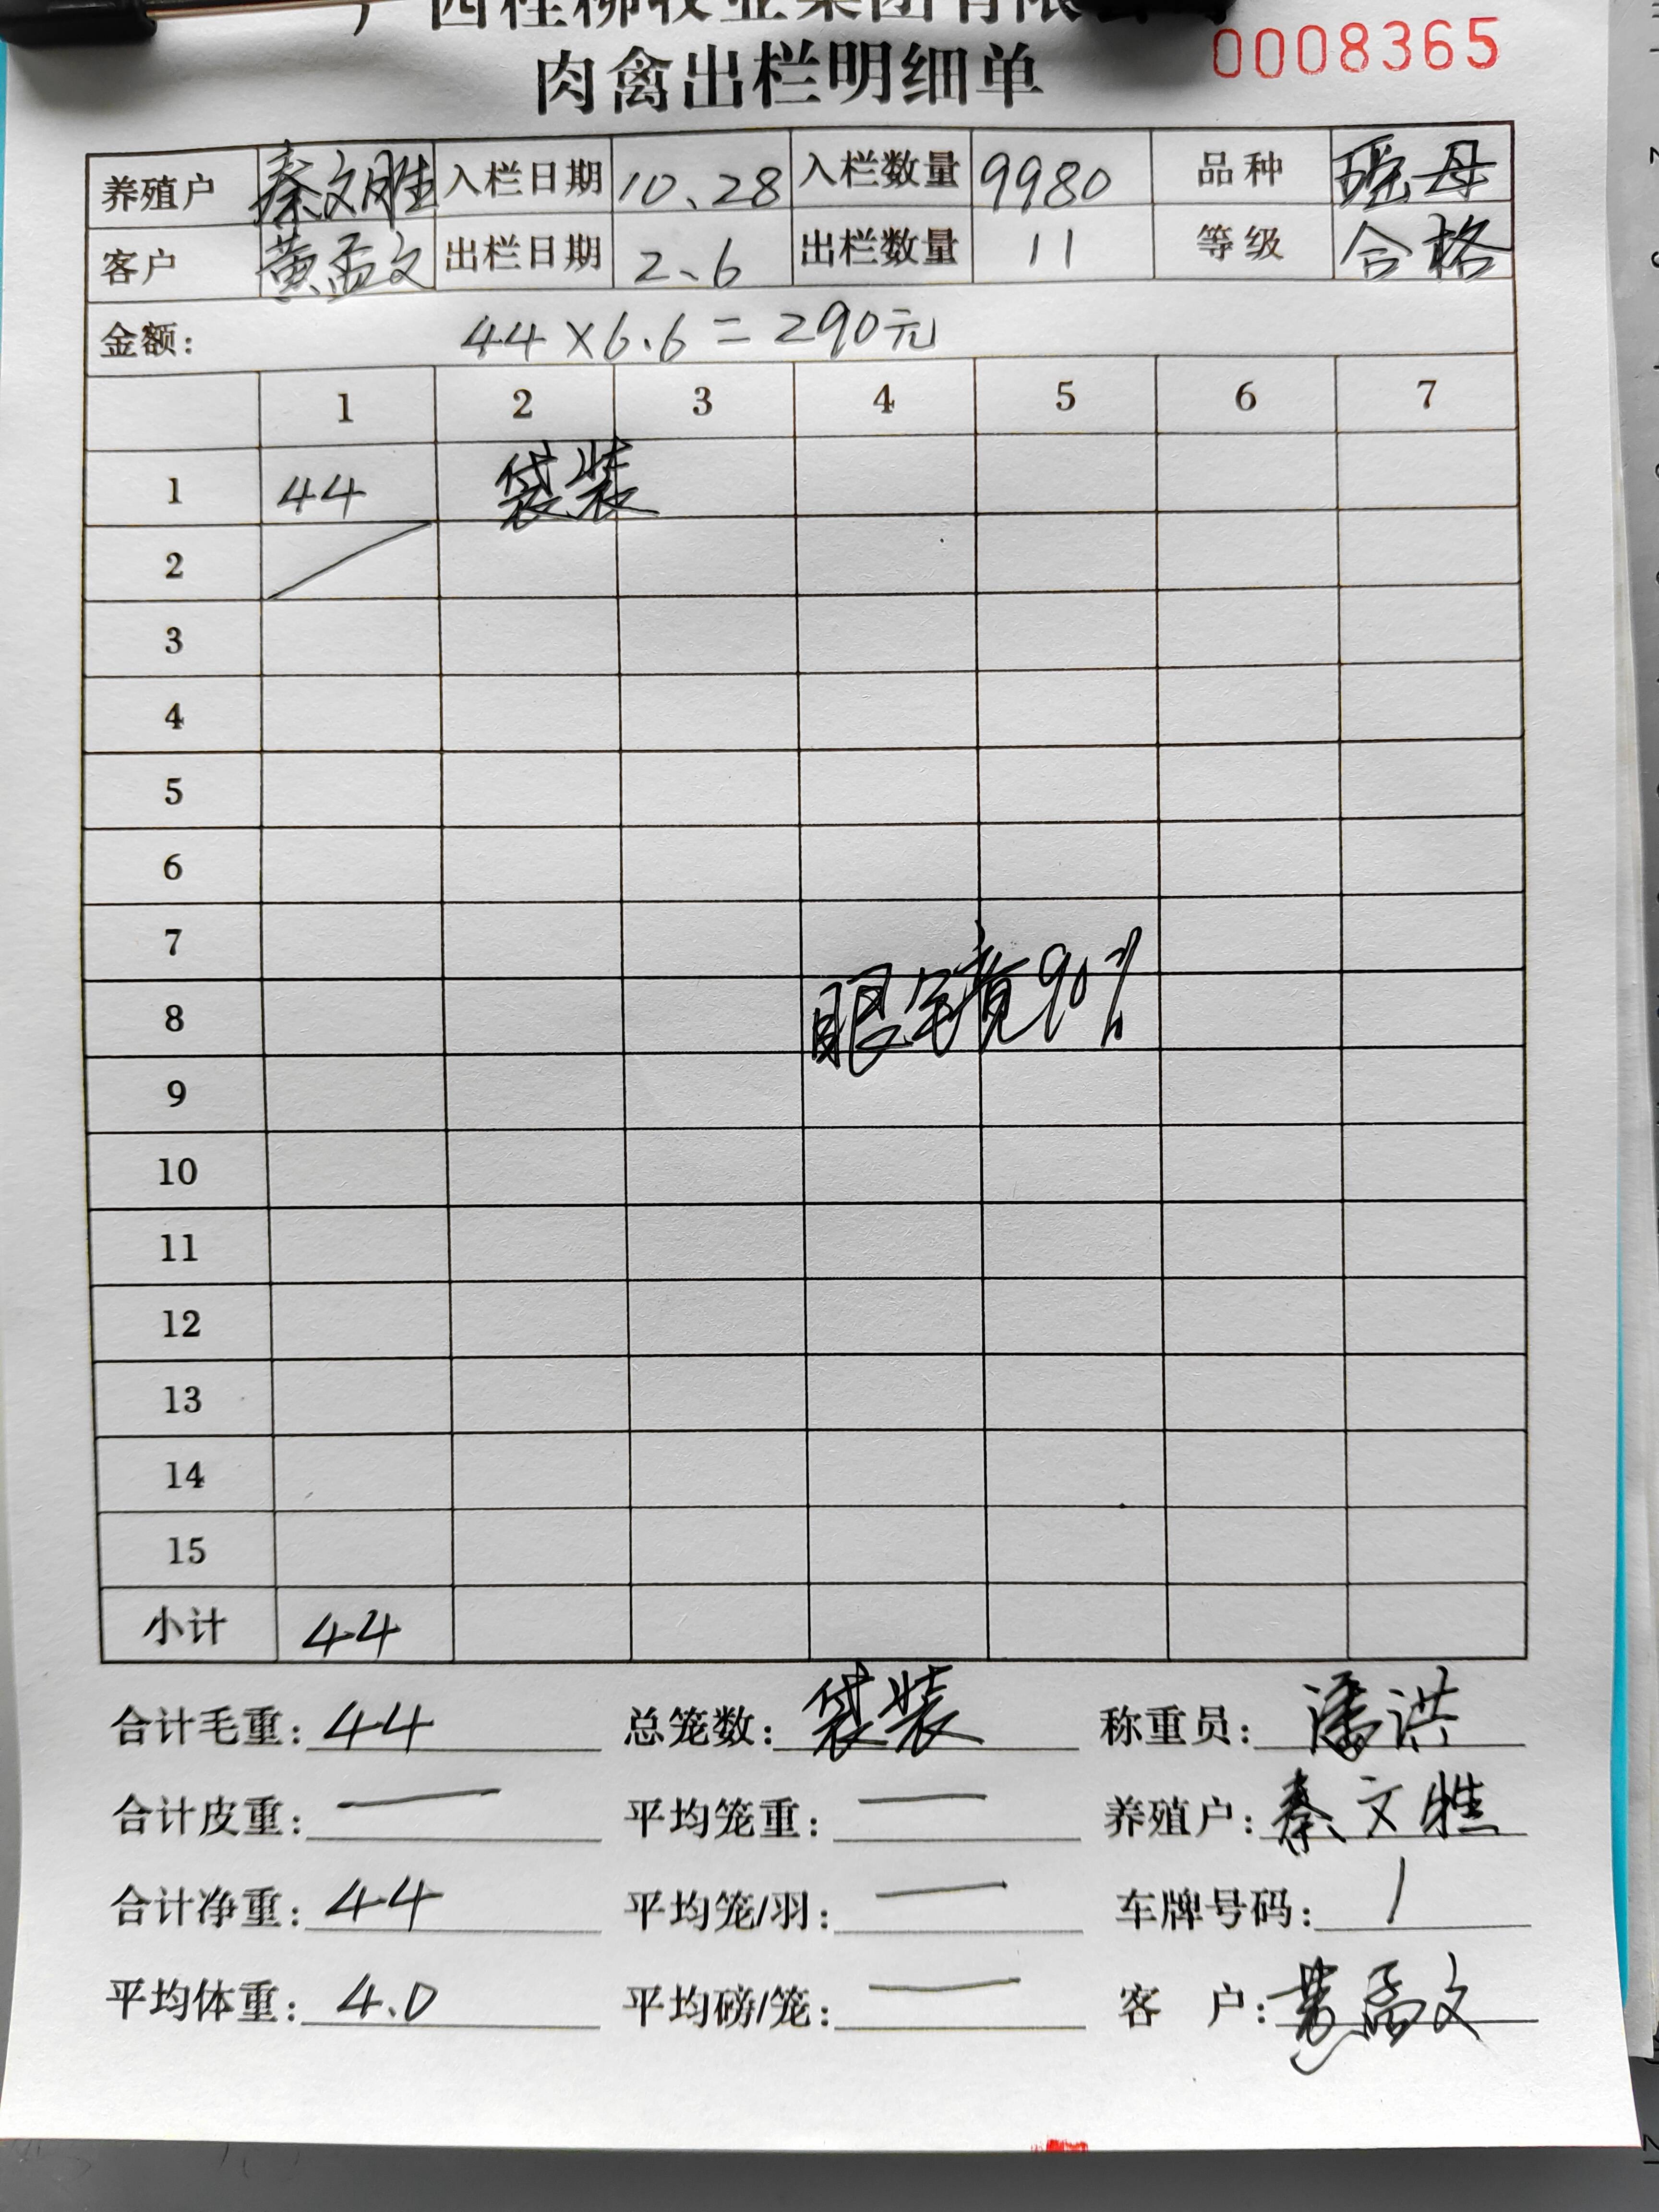 广西桂柳牧业集团有限公司
0008365
肉禽出栏明细单
养殖户 秦文胜 入栏日期 10、28 入栏数量 9980 品种 瑶母
客户 黄孟文 出栏日期 2、6 出栏数量 11 等级 合格
金额： 44×6.6=290元
1 2 3 4 5 6 7
1 44 袋装
2
3
4
5
6
7
8 眼镜90%
9
10
11
12
13
14
15
小计 44
合计毛重： 44 总笼数： 袋装 称重员： 潘洪
合计皮重： — 平均笼重： — 养殖户： 秦文胜
合计净重： 44 平均笼/羽： — 车牌号码： /
平均体重： 4.0 平均磅/笼： — 客 户： 黄孟文